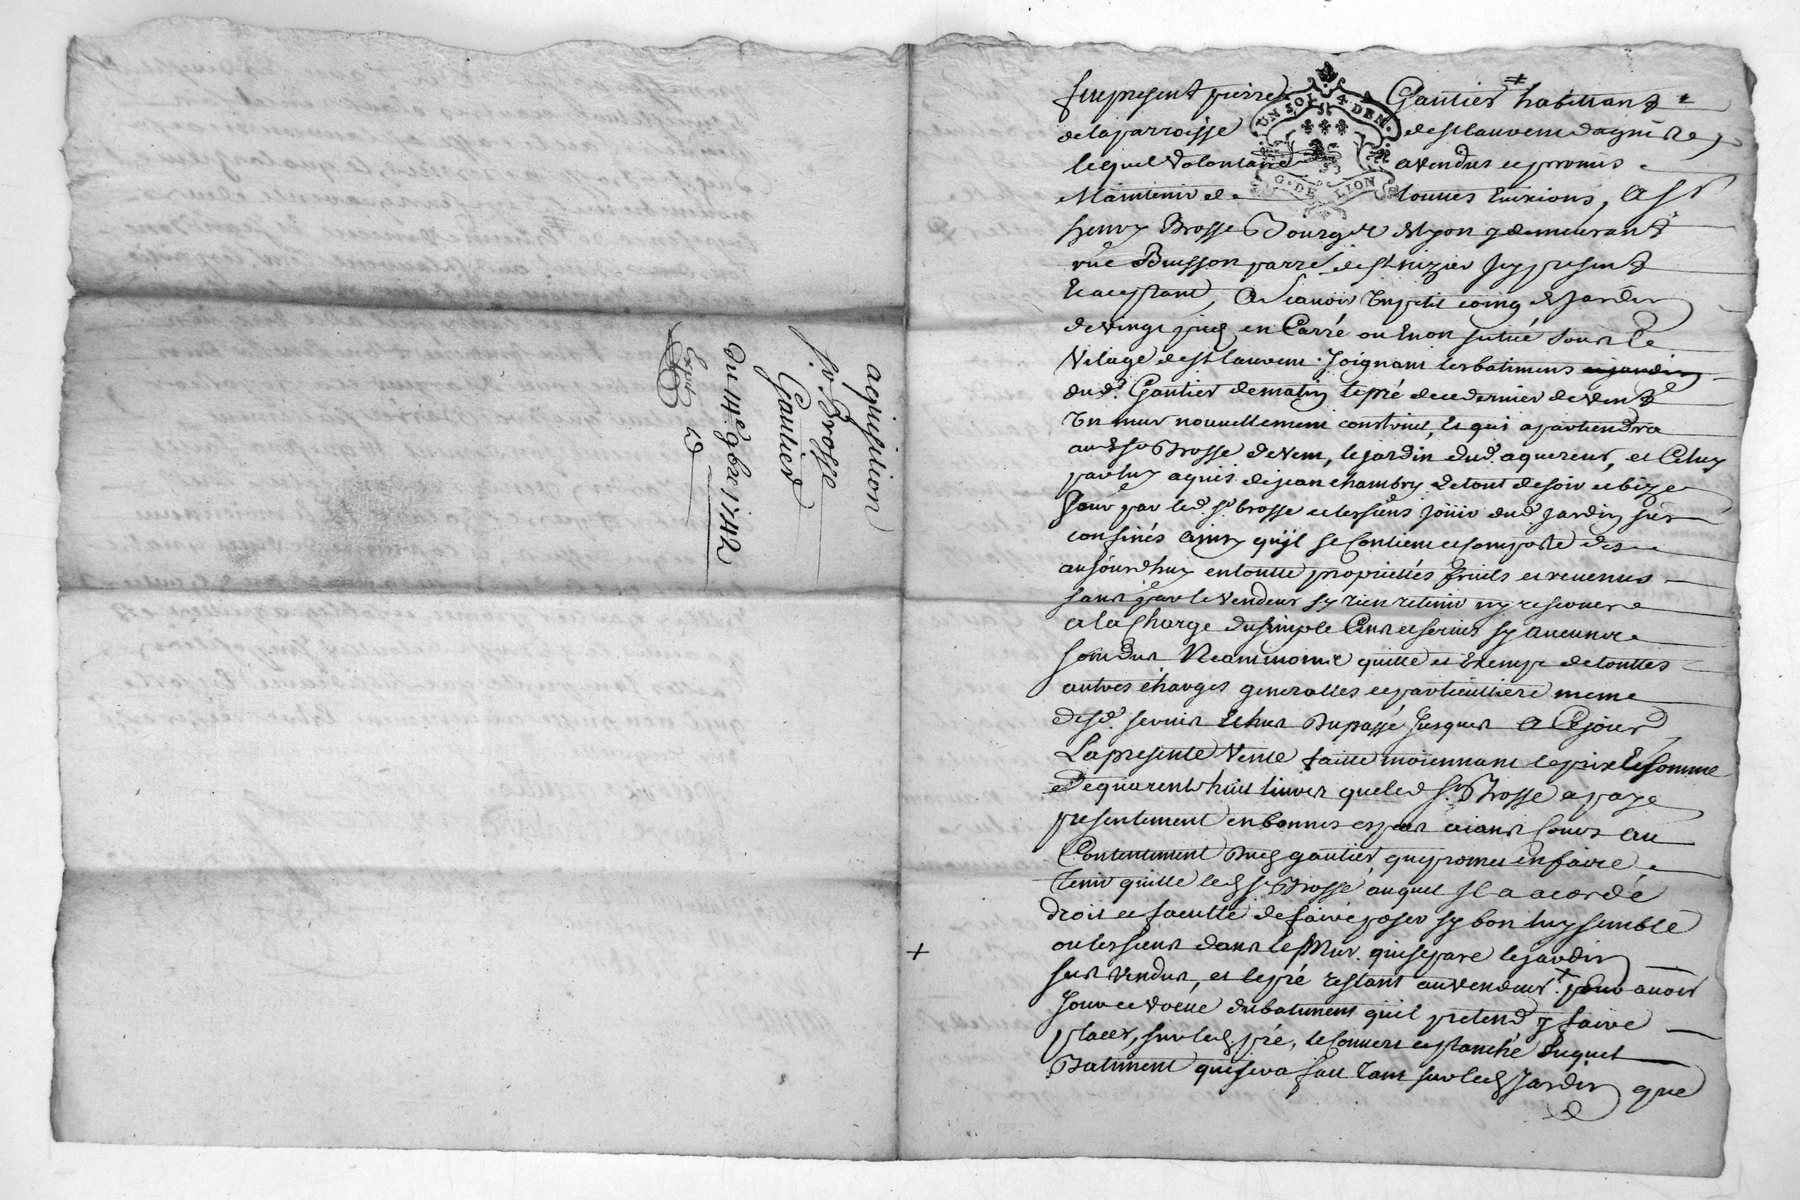 aquisition
sr. Brosse
Gautier
Du 14e. 9bre 1742
Expd.
fut present pierre Gautier habittant
de la parroisse de st laurent dagni
lequel volontaire a vendus et promis
Maintenir de touttes Evixions, A Sr
henry Brosse Bourgs de Lyon y demeurant
rüe Buisson parre. de st nizier Icy present
Et aceptant, A Scavoir Un petit coing de Jardin
de vingt pieds en Carré ou Environ situé dans le
Vilage de st laurent. Joignant les batiments
dud. Gautier de matin le pré de ce dernier de vent
Un mur nouvellement construit, et qui apartiendra
aud sr Brosse de vent, le jardin dud. aquereur, et Celuy
par luy aquis de jean chambry de tout de soir et bize
Pour par led. sr. brosse et les siens joüir dud Jardin sus
confinés ainsy qu'jl se Contient et comporte des
aujourdhuy en toutte propriettés fruits et revenus
sans par le vendeur sy rien retenir ny reserver
a la Charge du simple Cens et servis sy aucun
sont dus Neanmoins quitte et Exempt de touttes
autres charges generalles et particullieres meme
desd. servis Echus Du passé Jusques A Ce jour
La presente Vente faitte moiennant le prix Et somme
De quarente huit livres que led sr. Brosse a payé
presentement en bonnes especes aiants Cours au
Contentement Dud gautier qui promet en faire
tenir quitte led sr Brosse auquel Il a acordé
droit et faculté de faire poser sy bon luy semble
ou les siens dans le Mur. qui separe le jardin
sus vendus, et le pré restant au vendeur. + pour avoir
Jour et veüe du batiment quil pretend y faire
placer, sur led. pré, le couvert et planché duquel
Batiment qui sera fait tant sur led Jardin que
+
UN SOL 4 DEN.
G. DE LION